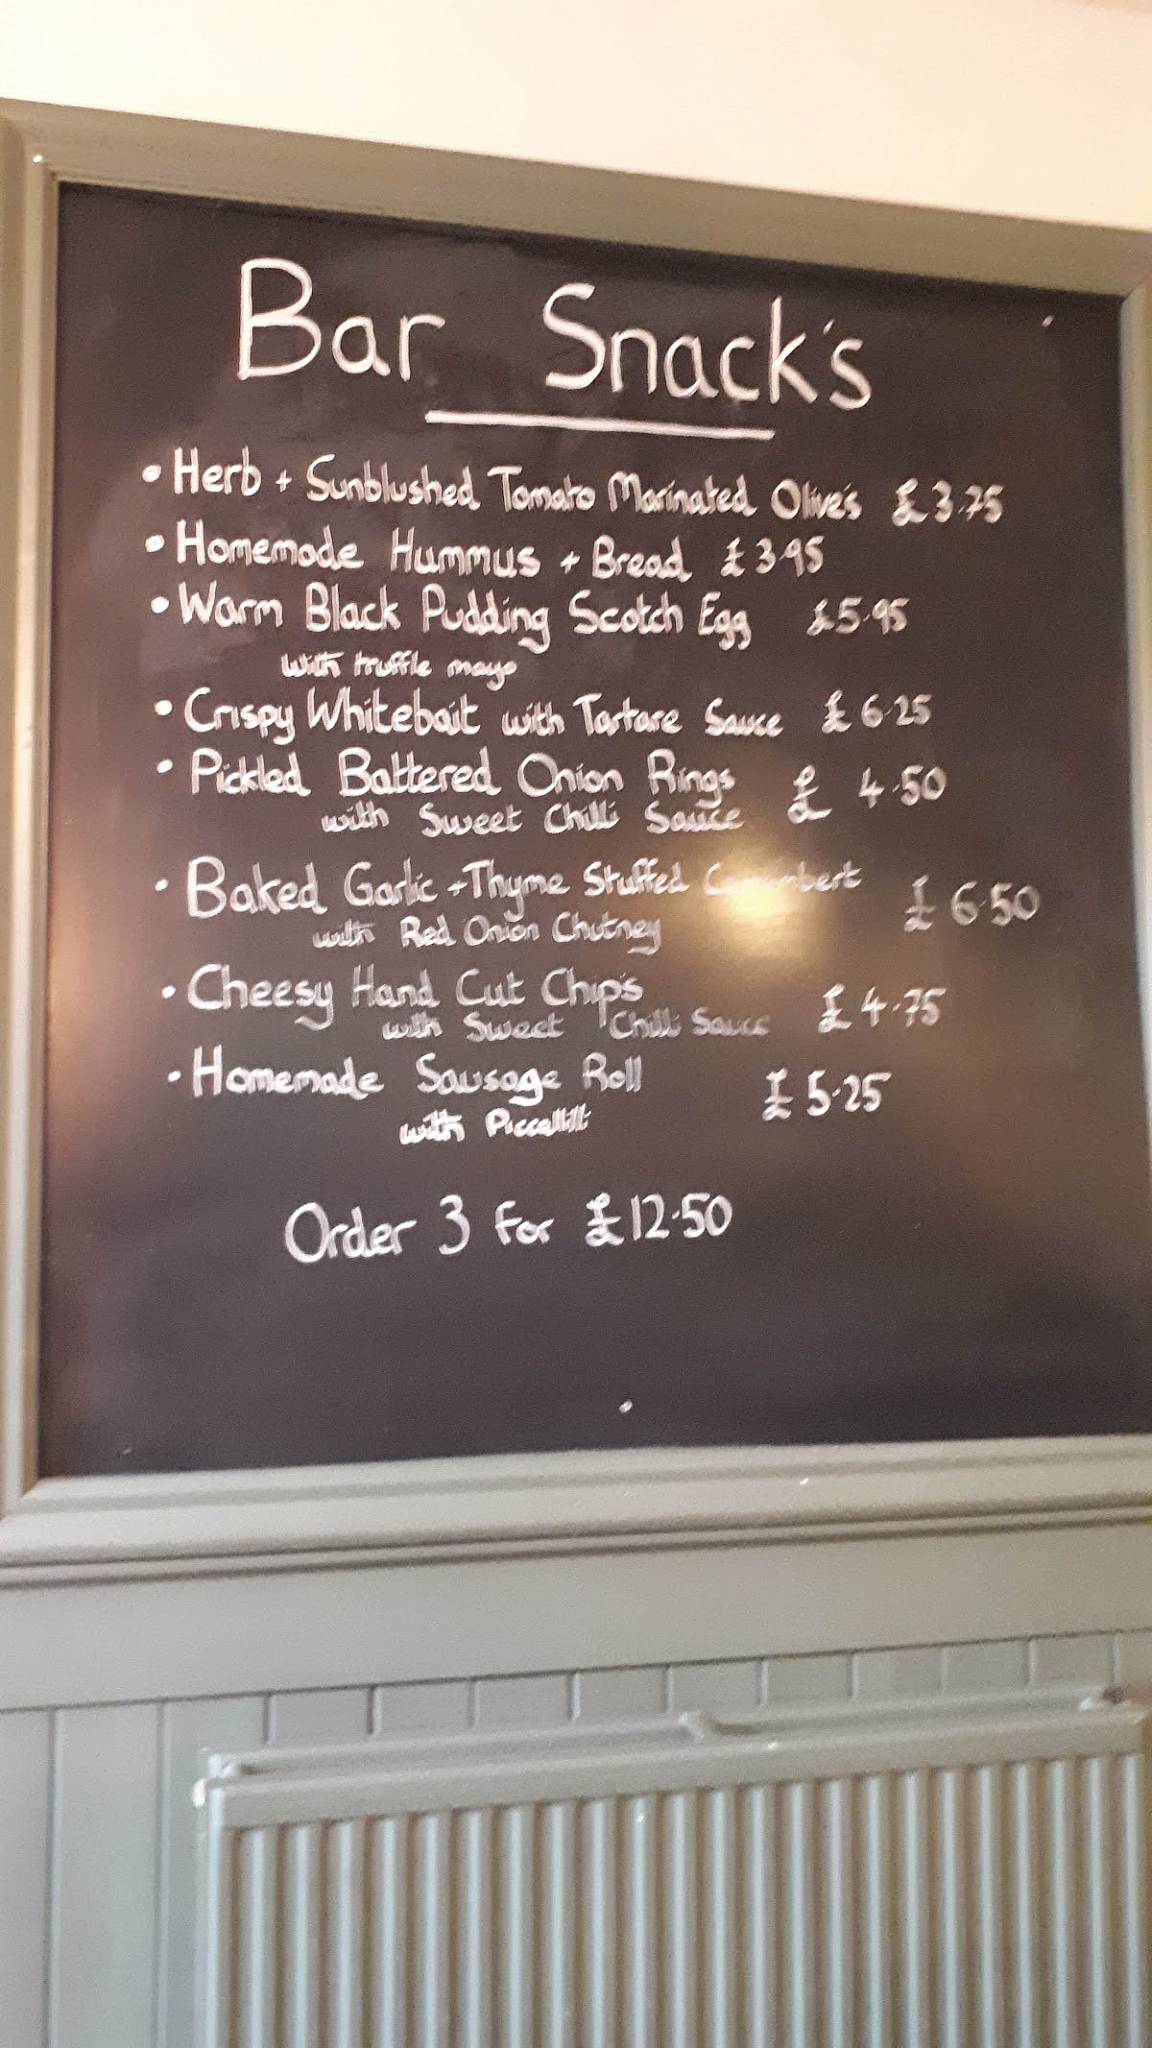 Bar Snack's
• Herb + Sunblushed Tomato Marinated Olive's £3.75
• Homemade Hummus + Bread £3.95
• Warm Black Pudding Scotch Egg £5.95
with truffle mayo
• Crispy Whitebait with Tartare Sauce £6.25
• Pickled Battered Onion Rings £4.50
with Sweet Chilli Sauce
• Baked Garlic + Thyme Stuffed Camembert £6.50
with Red Onion Chutney
• Cheesy Hand Cut Chip's £4.75
with Sweet Chilli Sauce
• Homemade Sausage Roll £5.25
with Piccallilli
Order 3 for £12.50